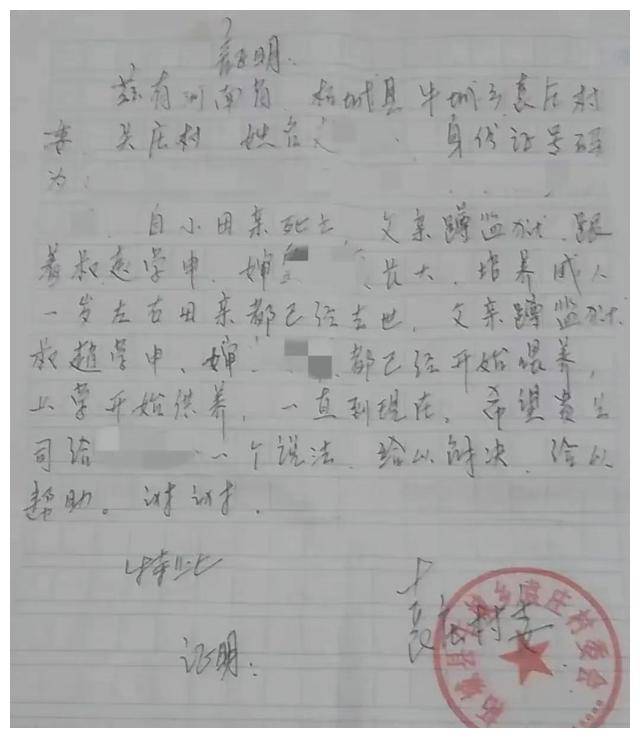 证明
兹有河南省 柘城县牛城乡袁庄村
委 关庄村 姓名 身份证号码
为:
自小母亲死亡,父亲蹲监狱,跟
着叔赵学申,婶 长大,培养成人
一岁左右母亲都已经去世,父亲蹲监狱
叔赵学申、婶 都已经开始喂养,
上学开始供养,一直到现在。希望贵公
司给 一个说法,给以解决,给以
帮助。谢谢。
特此
袁庄村委
证明:
乡 庄村委会